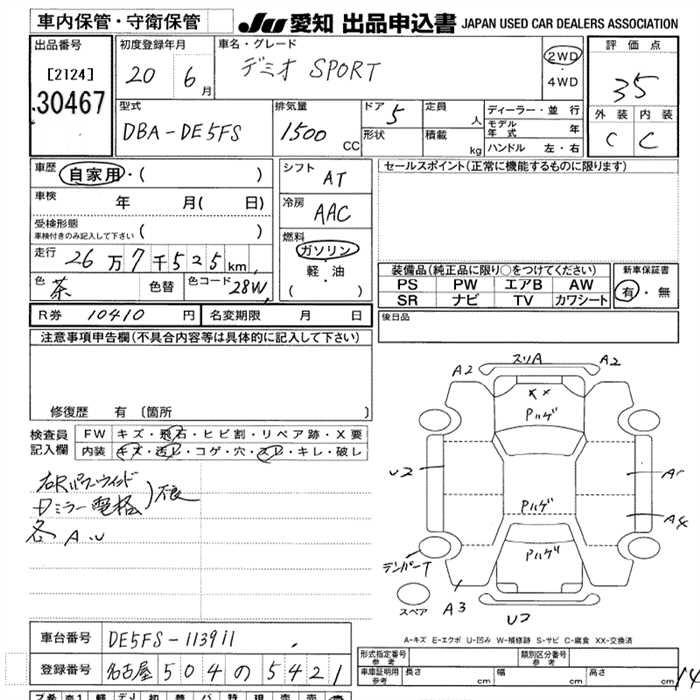 車内保管・守衛保管
JU 愛知 出品申込書 JAPAN USED CAR DEALERS ASSOCIATION
出品番号
[2124]
30467
初度登録年月
20 6月
車名・グレード
デミオ SPORT
2WD
・
4WD
評価点
35
外装 内装
C C
型式
DBA-DE5FS
排気量
1500 CC
ドア 5
形状
定員 人
積載 kg
ディーラー・並行
モデル年式 年
ハンドル 左・右
車歴
自家用・( )
車検 年 月( 日)
受検形態
車検付きのみ記入して下さい ( )
走行 26万7千525km
色 茶 色替 色コード 28W
シフト AT
冷房 AAC
燃料
ガソリン
・
軽・油
( )
セールスポイント(正常に機能するものに限ります)
装備品(純正品に限り○をつけてください)
PS PW エアB AW
SR ナビ TV カワシート
新車保証書
有・無
R券 10410 円 名変期限 月 日
後日品
注意事項申告欄(不具合内容等は具体的に記入して下さい)
修復歴 有 〔箇所 〕
検査員記入欄
FW キズ・飛石・ヒビ割・リペア跡・X要
内装 キズ・汚レ・コゲ・穴・スレ・キレ・破レ
右Rパワーウィンド
ミラー電格)不良
各 A.U
A2 スリA A2
Pハゲ
U2
Pハゲ
A4
Pハゲ
テンパーT
スペア
A3
U2
A-キズ E-エクボ U-凹み W-補修跡 S-サビ C-腐食 XX-交換済
車台番号 DE5FS-113911
登録番号 名古屋 504 の 5421
形式指定番号 参考
類別区分番号 参考
車庫証明用 参考 長さ cm 幅 cm 高さ cm